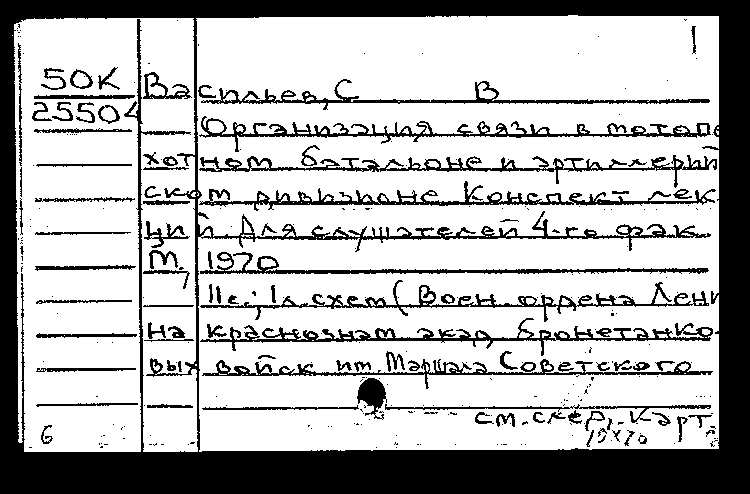 1
50К Васильев, С В
25504
Организация связи в мотопе
хотном батальоне и артиллерий
ском дивизионе Конспект лек
ций. Для слушателей 4-го фак.
М, 1970
11с.; 1л.схем (Воен. ордена Лени
на краснознам акад бронетанко-
вых войск им. Маршала Советского
см. след. карт.
6